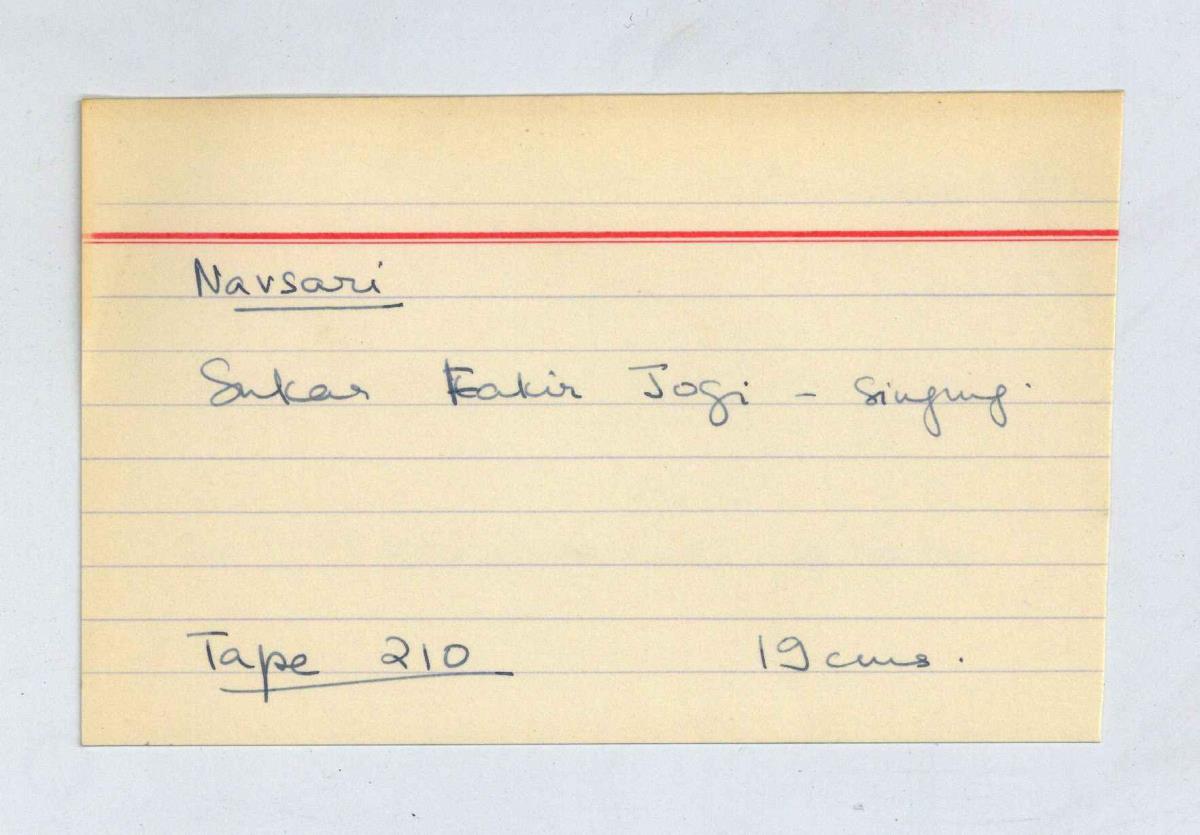 Navsari
Sukar Fakir Jogi - Singing.
Tape 210 19 cms.